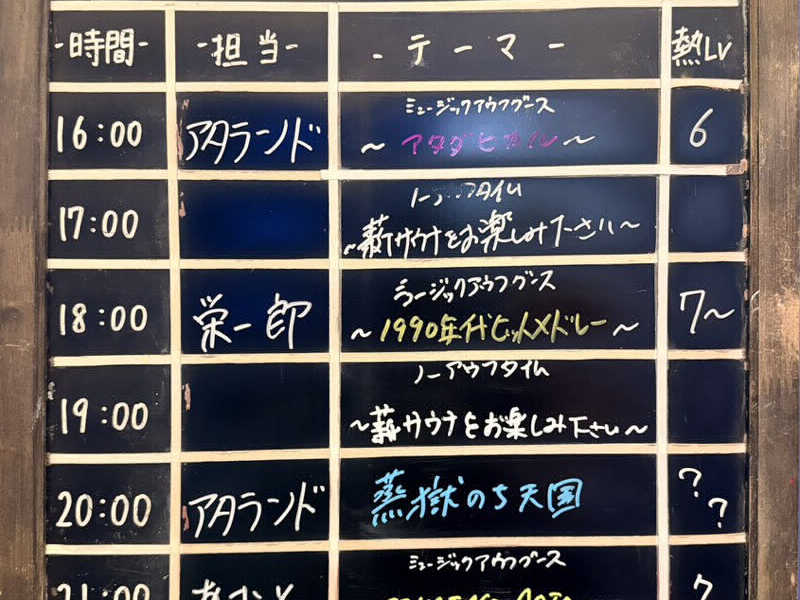 -時間- -担当- -テーマ- 熱LV
16:00 アタランド ミュージックアウフグース 6
～アタダヒカル～
17:00 ノーアウフタイム
～薪サウナをお楽しみ下さい～
18:00 栄一郎 ミュージックアウフグース 7～
～1990年代ヒットメドレー～
19:00 ノーアウフタイム
～薪サウナをお楽しみ下さい～
20:00 アタランド 蒸獄のち天国 ??
21:00 ミュージックアウフグース